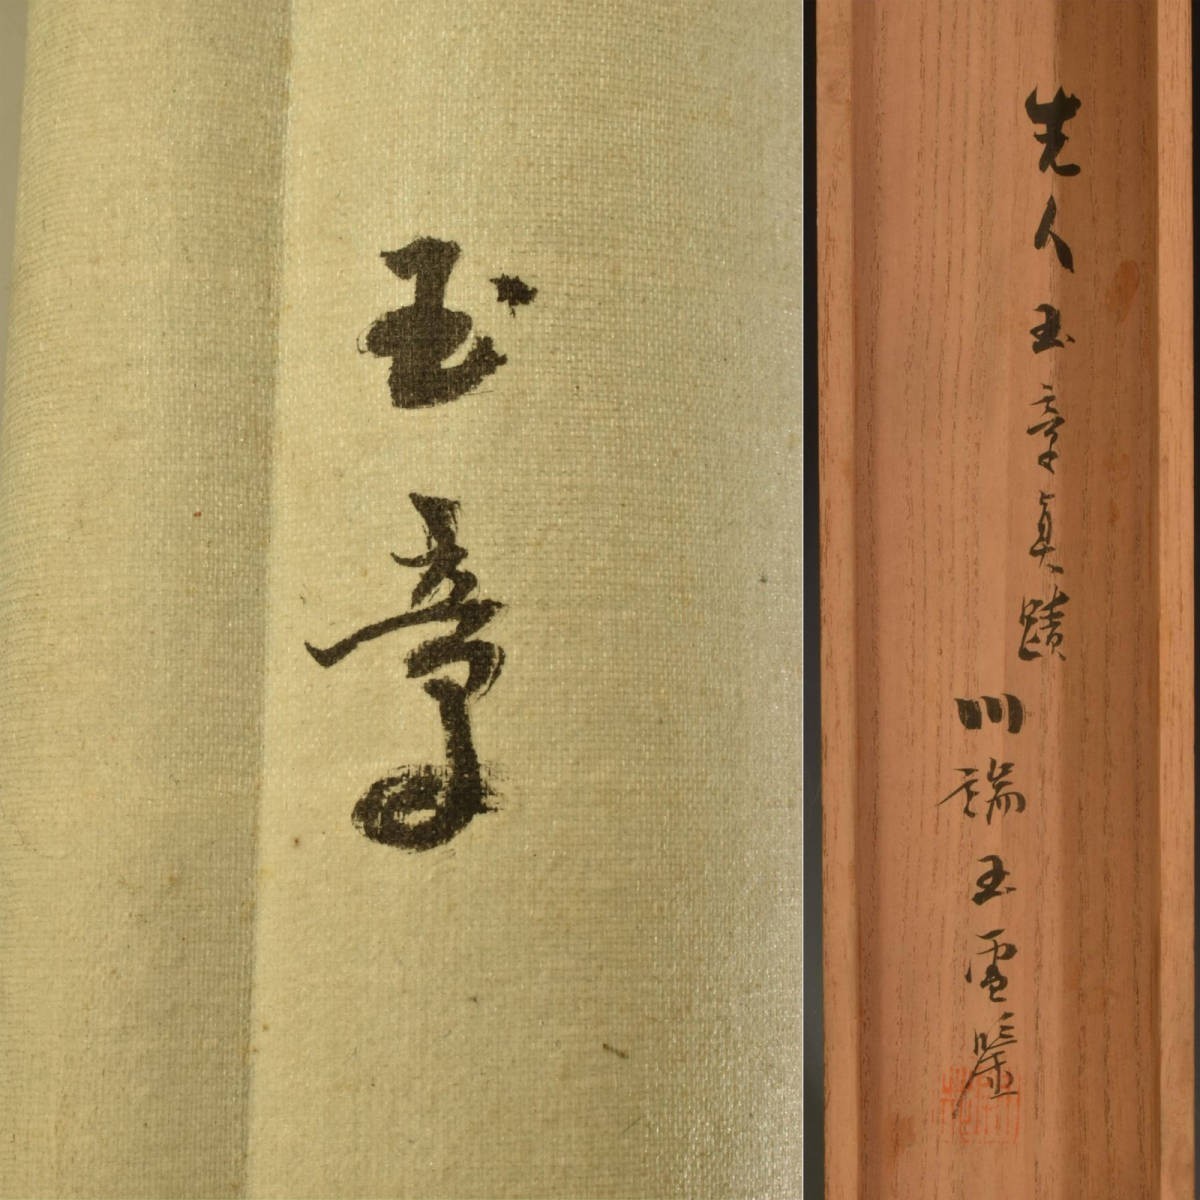 玉章
先人玉章真蹟
川端玉雪鑒